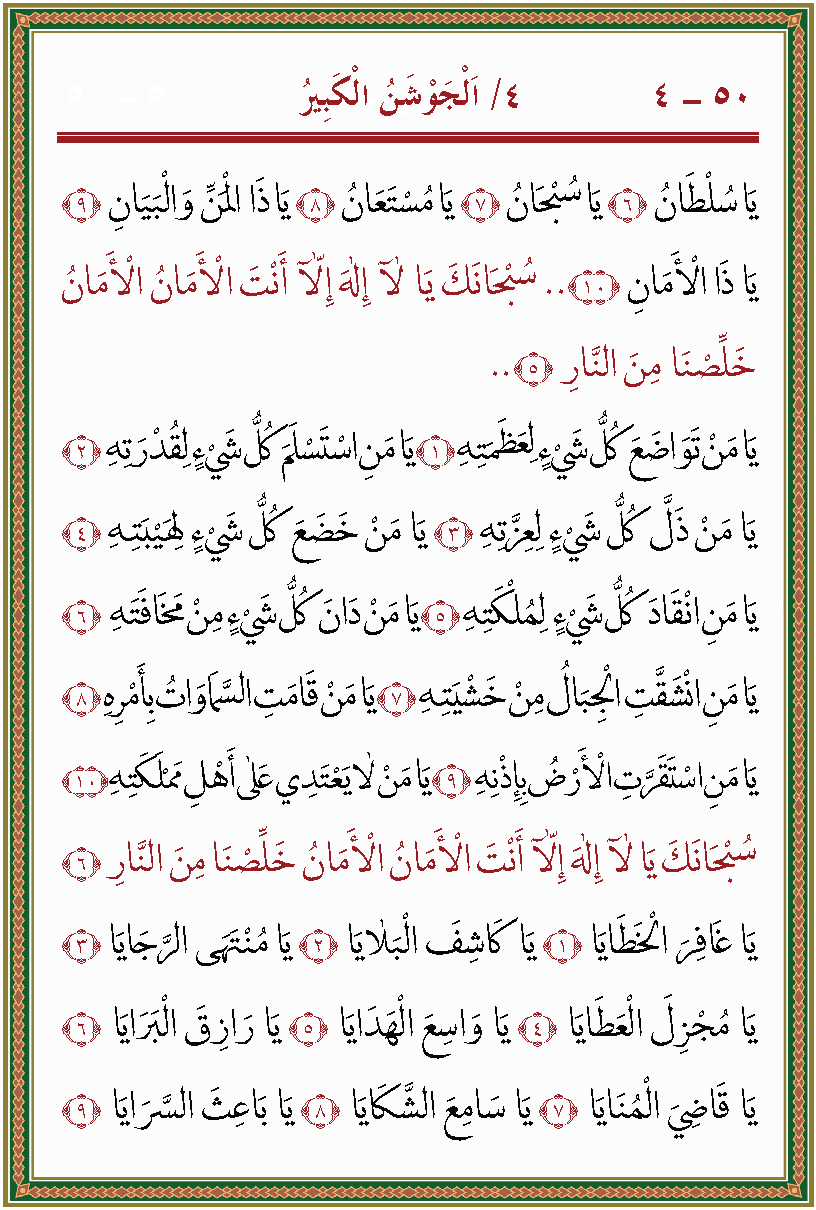 ٥٠ – ٤ ٤/ اَلْجَوْشَنُ الْكَبِيرُ
يَا سُلْطَانُ ﴿٦﴾ يَا سُبْحَانُ ﴿٧﴾ يَا مُسْتَعَانُ ﴿٨﴾ يَا ذَا الْمَنِّ وَالْبَيَانِ ﴿٩﴾
يَا ذَا الْأَمَانِ ﴿١٠﴾.. سُبْحَانَكَ يَا لَآ إِلٰهَ إِلَّآ أَنْتَ الْأَمَانُ الْأَمَانُ
خَلِّصْنَا مِنَ النَّارِ ﴿٥﴾..
يَا مَنْ تَوَاضَعَ كُلُّ شَيْءٍ لِعَظَمَتِهِ ﴿١﴾ يَا مَنِ اسْتَسْلَمَ كُلُّ شَيْءٍ لِقُدْرَتِهِ ﴿٢﴾
يَا مَنْ ذَلَّ كُلُّ شَيْءٍ لِعِزَّتِهِ ﴿٣﴾ يَا مَنْ خَضَعَ كُلُّ شَيْءٍ لِهَيْبَتِهِ ﴿٤﴾
يَا مَنِ انْقَادَ كُلُّ شَيْءٍ لِمُلْكَتِهِ ﴿٥﴾ يَا مَنْ دَانَ كُلُّ شَيْءٍ مِنْ مَخَافَتَهِ ﴿٦﴾
يَا مَنِ انْشَقَّتِ الْجِبَالُ مِنْ خَشْيَتِهِ ﴿٧﴾ يَا مَنْ قَامَتِ السَّمَاوَاتُ بِأَمْرِهِ ﴿٨﴾
يَا مَنِ اسْتَقَرَّتِ الْأَرْضُ بِإِذْنِهِ ﴿٩﴾ يَا مَنْ لَا يَعْتَدِي عَلٰى أَهْلِ مَمْلَكَتِهِ ﴿١٠﴾
سُبْحَانَكَ يَا لَآ إِلٰهَ إِلَّآ أَنْتَ الْأَمَانُ الْأَمَانُ خَلِّصْنَا مِنَ النَّارِ ﴿٦﴾
يَا غَافِرَ الْخَطَايَا ﴿١﴾ يَا كَاشِفَ الْبَلَايَا ﴿٢﴾ يَا مُنْتَهَى الرَّجَايَا ﴿٣﴾
يَا مُجْزِلَ الْعَطَايَا ﴿٤﴾ يَا وَاسِعَ الْهَدَايَا ﴿٥﴾ يَا رَازِقَ الْبَرَايَا ﴿٦﴾
يَا قَاضِيَ الْمُنَايَا ﴿٧﴾ يَا سَامِعَ الشَّكَايَا ﴿٨﴾ يَا بَاعِثَ السَّرَايَا ﴿٩﴾